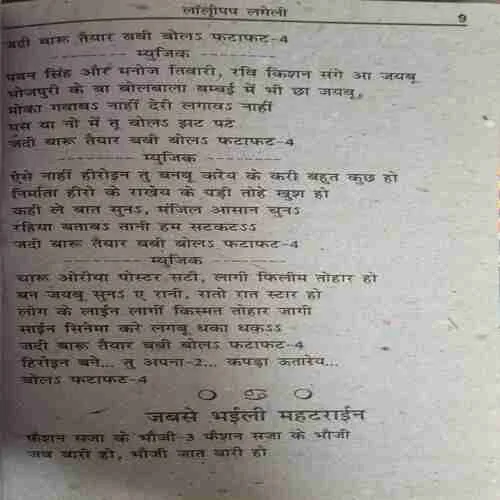 लॉलीपप लगेली
9
जदी बारू तैयार बबी बोलऽ फटाफट-4
म्युजिक
पवन सिंह और मनोज तिवारी, रवि किशन संगे आ जयबू
भोजपुरी के बा बोलबाला बम्बई में भी छा जयबू,
मोका गवाबऽ नाहीं देरी लगावऽ नाहीं
यस या नो में तू बोलऽ झट पटे
जदी बारू तैयार बबी बोलऽ फटाफट-4
म्युजिक
ऐसे नाहीं हीरोइन तु बनबू करेय के करी बहुत कुछ हो
निर्माता हीरो के राखेय के पड़ी तोहे खुश हो
कही ले बात सुनऽ, मंजिल आसान चुनऽ
रहिया बताबऽ तानी हम सटकटऽऽ
जदी बारू तैयार बबी बोलऽ फटाफट-4
म्युजिक
चारू ओरीया पोस्टर सटी, लागी फिलीम तोहार हो
बन जयबू सुनऽ ए रानी, रातो रात स्टार हो
लोग के लाईन लागी किस्मत तोहार जागी
साईन सिनेमा करे लगबू धका धकऽऽ
जदी बारू तैयार बबी बोलऽ फटाफट-4
हिरोइन बने... तु अपना-2... कपड़ा ऊतारेय...
बोलऽ फटाफट-4
जबसे भईली महटराईन
फैशन सजा के भौजी-3 फैशन सजा के भौजी
जब बारी हो, भौजी जात बारी हो